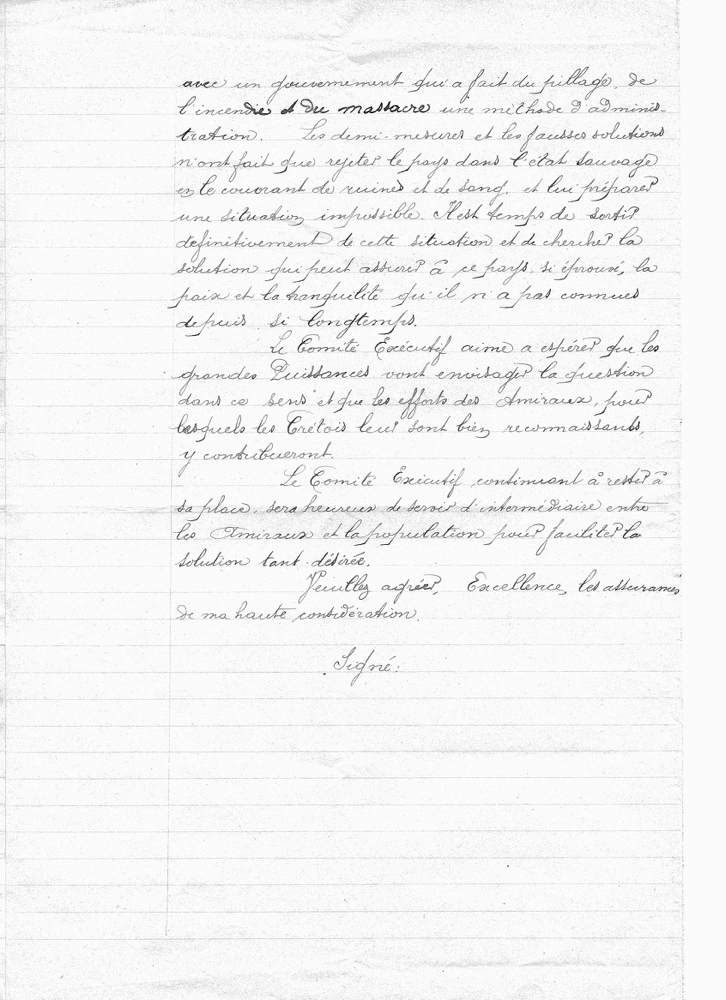 avec un gouvernement qui a fait du pillage, de
l'incendie et du massacre une méthode d'adminis-
tration. Les demi-mesures et les fausses solutions
n'ont fait que rejeter le pays dans l'état sauvage
en le couvrant de ruines et de sang, et lui préparer
une situation impossible. Il est temps de sortir
définitivement de cette situation et de chercher la
solution qui peut assurer à ce pays, si éprouvé, la
paix et la tranquilité qu'il n'a pas connues
depuis si longtemps.
Le Comité Exécutif aime a espérer que les
grandes Puissances vont envisager la question
dans ce sens et que les efforts des Amiraux, pour
lesquels les Crétois leur sont bien reconnaissants,
y contribueront.
Le Comité Exécutif, continuant à rester à
sa place, sera heureux de servir d'intermédiaire entre
les Amiraux et la population pour faciliter la
solution tant désirée.
Veuillez agréer, Excellence, les assurances
de ma haute considération.
Signé: